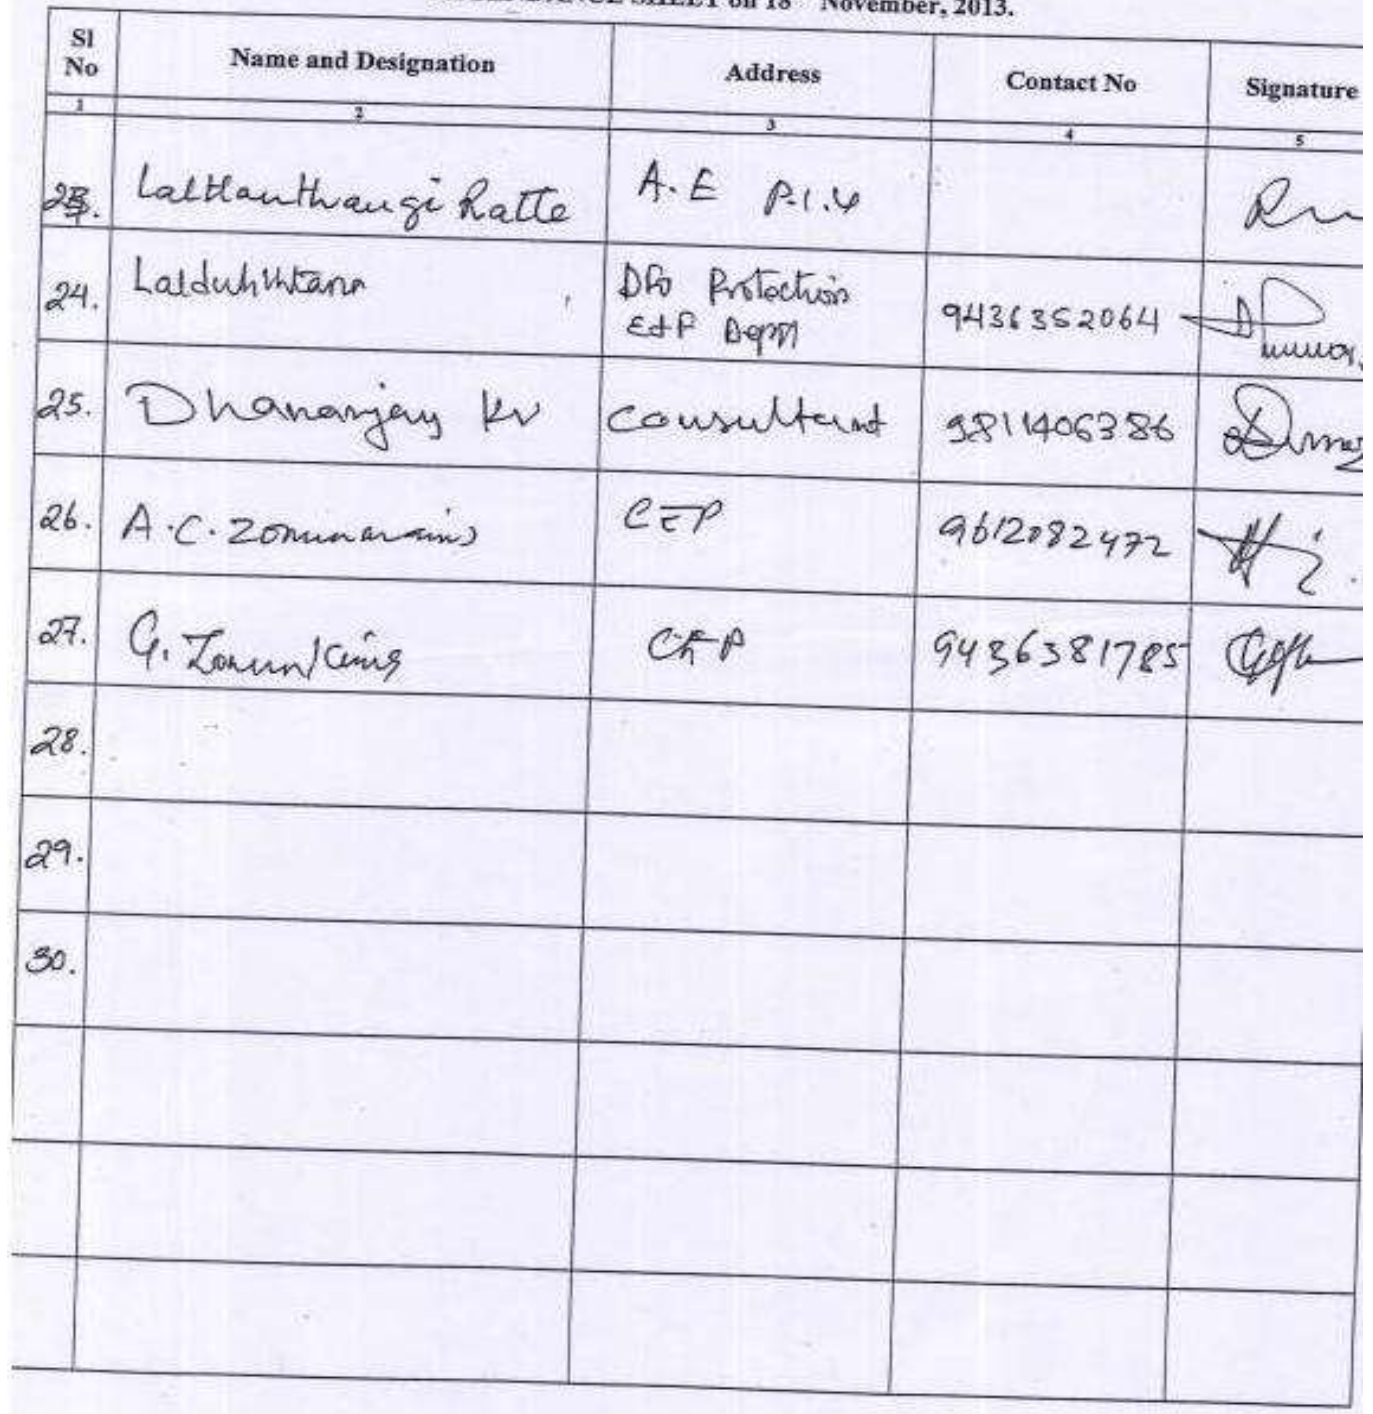 SHEET on 18 November, 2013.
Sl No Name and Designation Address Contact No Signature
1 2 3 4 5
23. Lalthanthangi Ralte A.E P.I.U
24. DFO Protection
E&F Deptt 9436352064
25. Dhananjay Kr Consultant 9811406386
26. A.C. CEP 9612082472
27. G. CEP 9436381785
28.
29.
30.